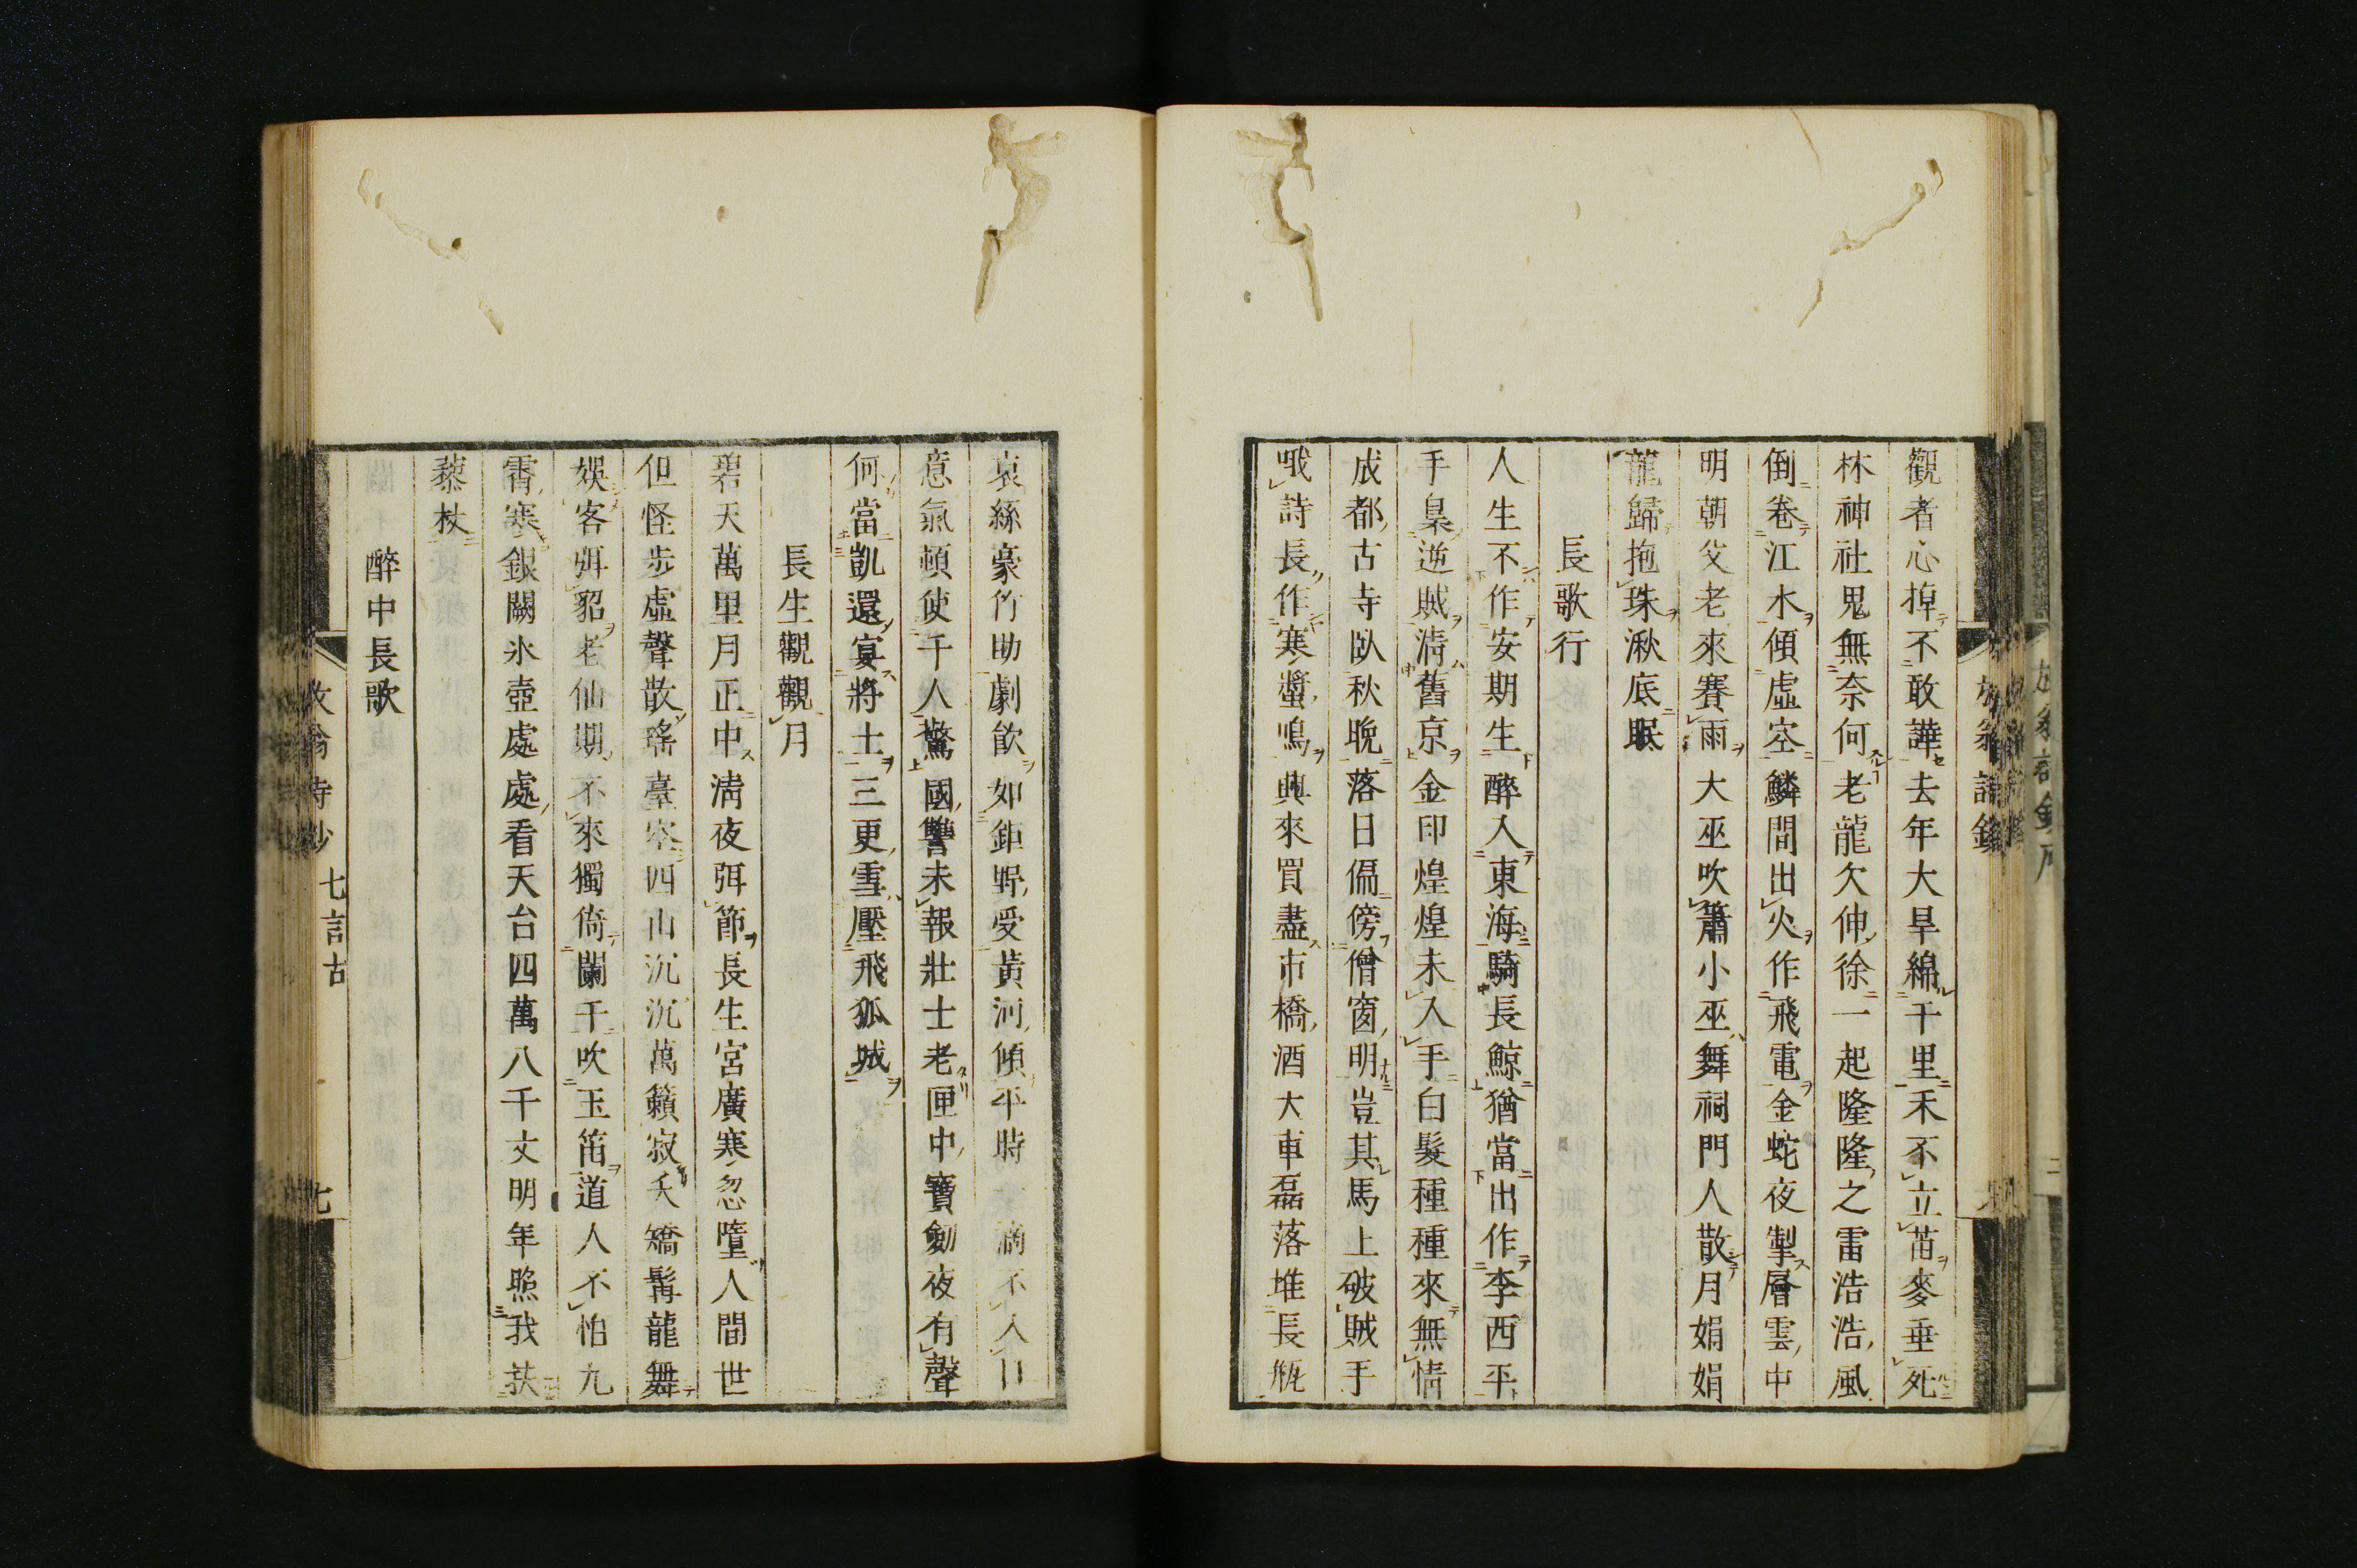 觀者心掉不敢譁去年大旱綿千里禾不立苗麥垂死
林神社鬼無奈何老龍欠伸徐一起隆隆之雷浩浩風
倒卷江水傾虛空鱗間出火作飛電金蛇夜掣層雲中
明朝父老來賽雨大巫吹簫小巫舞祠門人散月娟娟
龍歸抱珠湫底眠
長歌行
人生不作安期生醉入東海騎長鯨猶當出作李西平
手梟逆賊淸舊京金印煌煌未入手白髮種種來無情
成都古寺臥秋晚落日偏傍僧窗明豈其馬上破賊手
哦詩長作寒螿鳴興來買盡市橋酒大車磊落堆長瓶
哀絲豪竹助劇飮如鉅野受黃河傾平時一滴不入口
意氣頓使千人驚國讐未報壯士老匣中寶劒夜有聲
何當凱還宴將士三更雪壓飛狐城
長生觀觀月
碧天萬里月正中淸夜弭節長生宮廣寒忽墮人間世
但怪步虛聲散瑤臺空四山沉沉萬籟寂夭矯髯龍舞
娛客弭貂老仙期不來獨倚闌干吹玉笛道人不怕九
霄寒銀闕氷壺處處看天台四萬八千丈明年照我扶
藜杖
醉中長歌
放翁詩鈔 七言古 七